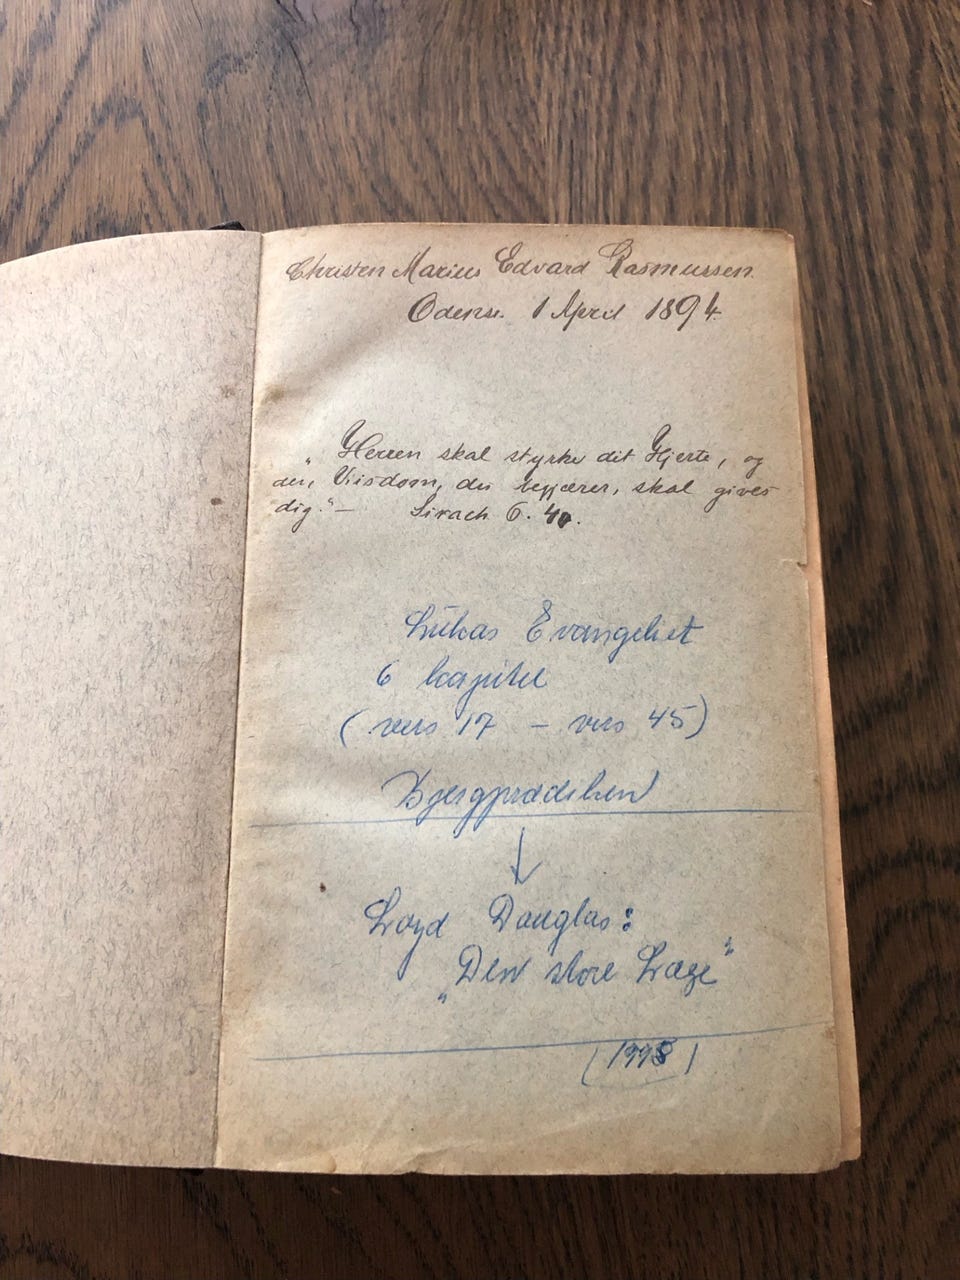 Christen Marius Edvard Rasmussen.
Odense. 1 April 1894.
„Herren skal styrke dit Hjerte, og
den, Viisdom, du begjærer, skal gives
dig.“— Sirach 6. 40.
Lukas Evangeliet
6 kapitel
(vers 17 – vers 45)
Bjergprædiken
↓
Loyd Douglas:
„Den store Læge”
(1998)